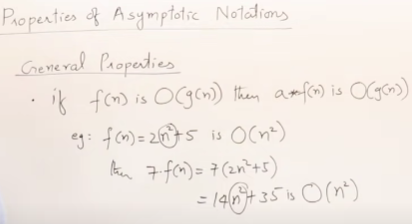 Properties of Asymptotic Notations
General Properties
· if f(n) is O(g(n)) then a*f(n) is O(g(n))
eg: f(n)=2n²+5 is O(n²)
then 7·f(n)=7(2n²+5)
=14n²+35 is O(n²)